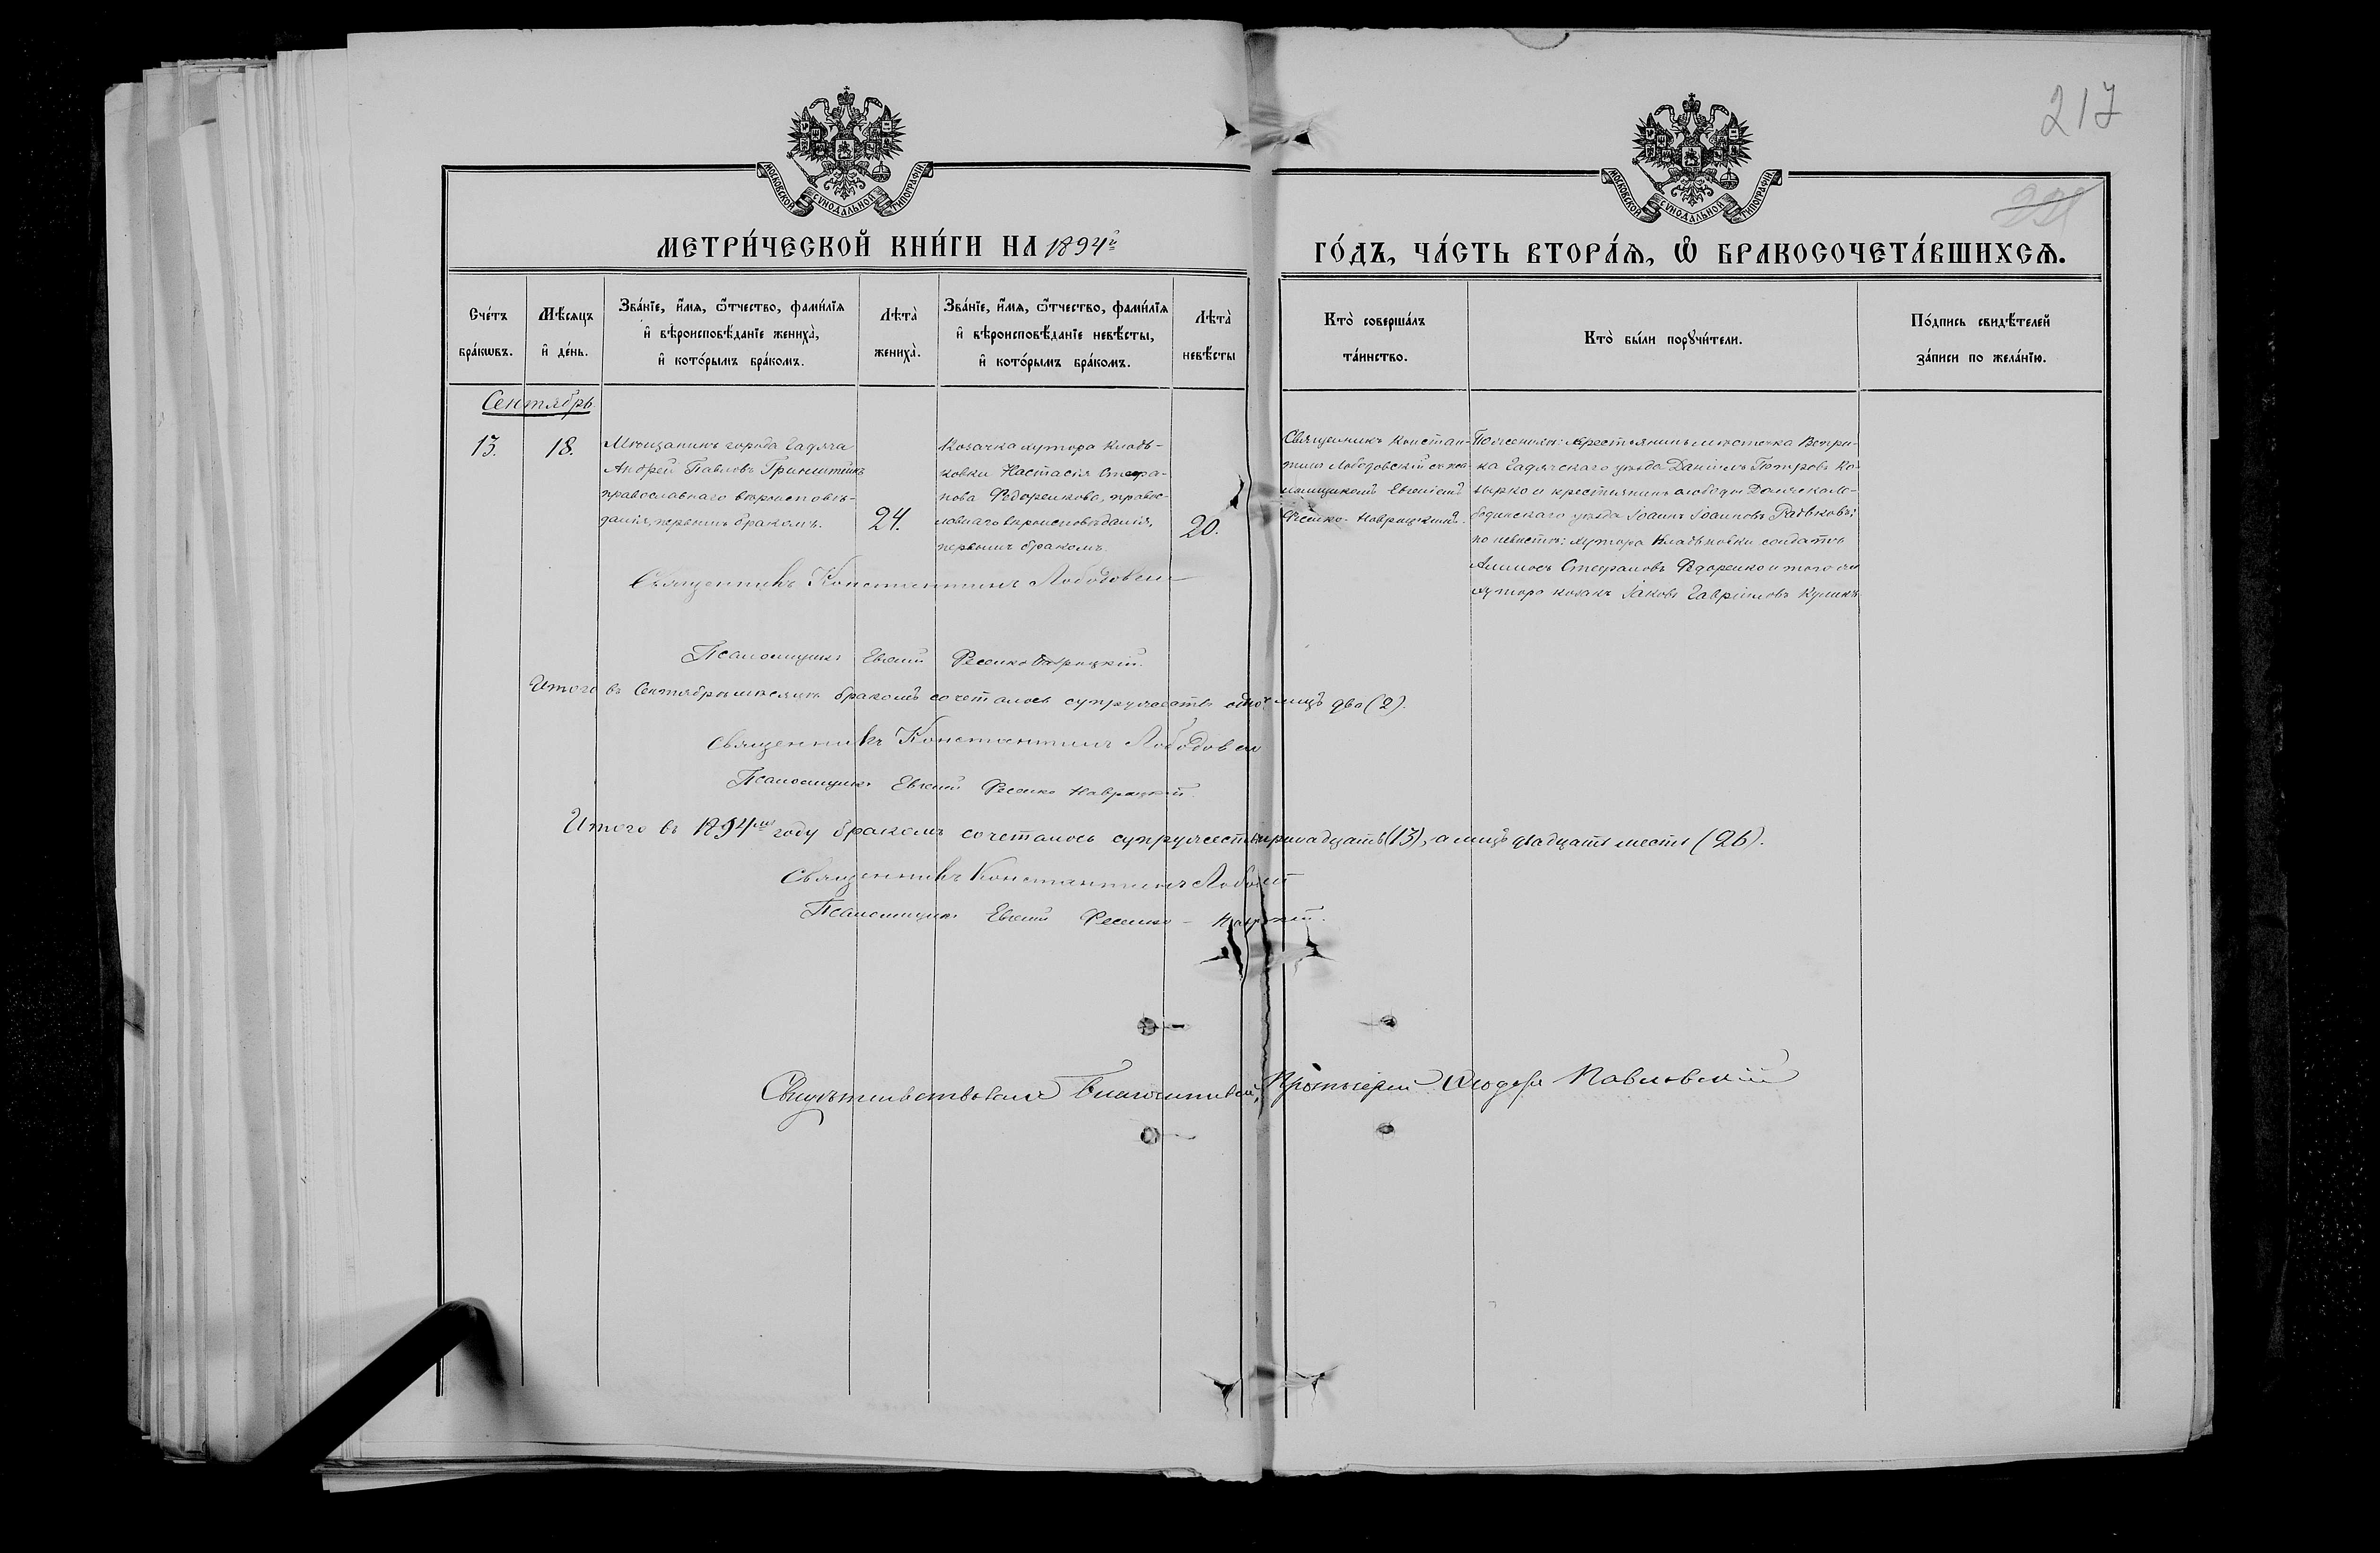 217
МОСКОВСКОЙ СѴНОДАЛЬНОЙ ТИПОГРАФІИ
МОСКОВСКОЙ СѴНОДАЛЬНОЙ ТИПОГРАФІИ
МЕТРИ́ЧЕСКОЙ КНИ́ГИ НА 1894й
ГО́ДЪ, ЧА́СТЬ ВТОРА́Ѧ, Ѽ БРАКОСОЧЕТА́ВШИХСѦ.
Сче́тъ бра́кѡвъ.
Мѣ́сяцъ и҆ де́нь.
Зва́нїе, и҆́мя, ѻ҆́тчество, фами́лїя и҆ вѣроисповѣ́данїе жениха̀, и҆ кото́рымъ бра́комъ.
Лѣта̀ жениха̀.
Зва́нїе, и҆́мя, ѻ҆́тчество, фами́лїя и҆ вѣроисповѣ́данїе невѣ́сты, и҆ кото́рымъ бра́комъ.
Лѣта̀ невѣ́сты
Кто̀ соверша́лъ та́инство.
Кто̀ бы́ли порꙋчи́тели.
По́дпись свидѣ́телей за́писи по жела́нїю.
Сентябрь
13.
18.
Мѣщанинъ города Гадяча
Андрей Павловъ
православнаго вѣроисповѣ-
данія, первымъ бракомъ.
24.
Козачка хутора Кладь-
ковки Настасія Стефа-
нова Федоренкова, правос-
лавнаго вѣроисповѣданія,
первымъ бракомъ.
20.
Священникъ Констан-
тинъ Лободовскій съ пса-
ломщикомъ Евгеніемъ
Фесенко-Навроцкимъ.
По женихѣ: крестьянинъ мѣстечка Вепри-
ка Гадячскаго уѣзда Даніилъ Петровъ
и крестьянинъ слободы
уѣзда Іоаннъ Іоанновъ
по невѣстѣ: хутора Кладьковки солдатъ
Стефановъ Федоренко и того же
хутора козакъ Іаковъ Гавріиловъ Куликъ.
Священникъ Константинъ Лободовскій
Псаломщикъ Евгеній Фесенко Навроцкій.
Итого въ Сентябрѣ мѣсяцѣ бракомъ сочеталось супружествъ одно, лицъ два (2).
Священникъ Константинъ Лободовскій
Псаломщикъ Евгеній Фесенко Навроцкій.
Итого въ 1894мъ году бракомъ сочеталось супружествъ тринадцать (13), а лицъ двадцать шесть (26).
Священникъ Константинъ
Псаломщикъ Евгеній Фесенко-
Свидѣтельствовалъ Благочинный, Протоіерей Ѳеодоръ Павловскій